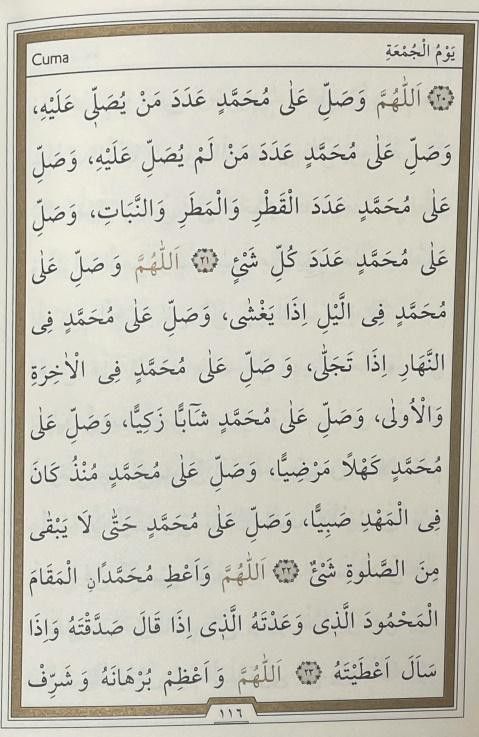 Cuma
يَوْمُ الْجُمْعَةِ
﴿٢٠﴾ اَللّٰهُمَّ وَصَلِّ عَلٰى مُحَمَّدٍ عَدَدَ مَنْ يُصَلّٖى عَلَيْهِ،
وَصَلِّ عَلٰى مُحَمَّدٍ عَدَدَ مَنْ لَمْ يُصَلِّ عَلَيْهِ، وَصَلِّ
عَلٰى مُحَمَّدٍ عَدَدَ الْقَطْرِ وَالْمَطَرِ وَالنَّبَاتِ، وَصَلِّ
عَلٰى مُحَمَّدٍ عَدَدَ كُلِّ شَيْئٍ ﴿٢١﴾ اَللّٰهُمَّ وَصَلِّ عَلٰى
مُحَمَّدٍ فِى الَّيْلِ اِذَا يَغْشٰى، وَصَلِّ عَلٰى مُحَمَّدٍ فِى
النَّهَارِ اِذَا تَجَلّٰى، وَصَلِّ عَلٰى مُحَمَّدٍ فِى الْاٰخِرَةِ
وَالْاُولٰى، وَصَلِّ عَلٰى مُحَمَّدٍ شَآبًّا زَكِيًّا، وَصَلِّ عَلٰى
مُحَمَّدٍ كَهْلًا مَرْضِيًّا، وَصَلِّ عَلٰى مُحَمَّدٍ مُنْذُ كَانَ
فِى الْمَهْدِ صَبِيًّا، وَصَلِّ عَلٰى مُحَمَّدٍ حَتّٰى لَا يَبْقٰى
مِنَ الصَّلٰوةِ شَيْئٌ ﴿٢٢﴾ اَللّٰهُمَّ وَاَعْطِ مُحَمَّدًانِ الْمَقَامَ
الْمَحْمُودَ الَّذٖى وَعَدْتَهُ الَّذٖى اِذَا قَالَ صَدَّقْتَهُ وَاِذَا
سَاَلَ اَعْطَيْتَهُ ﴿٢٣﴾ اَللّٰهُمَّ وَاَعْظِمْ بُرْهَانَهُ وَشَرِّفْ
١١٦